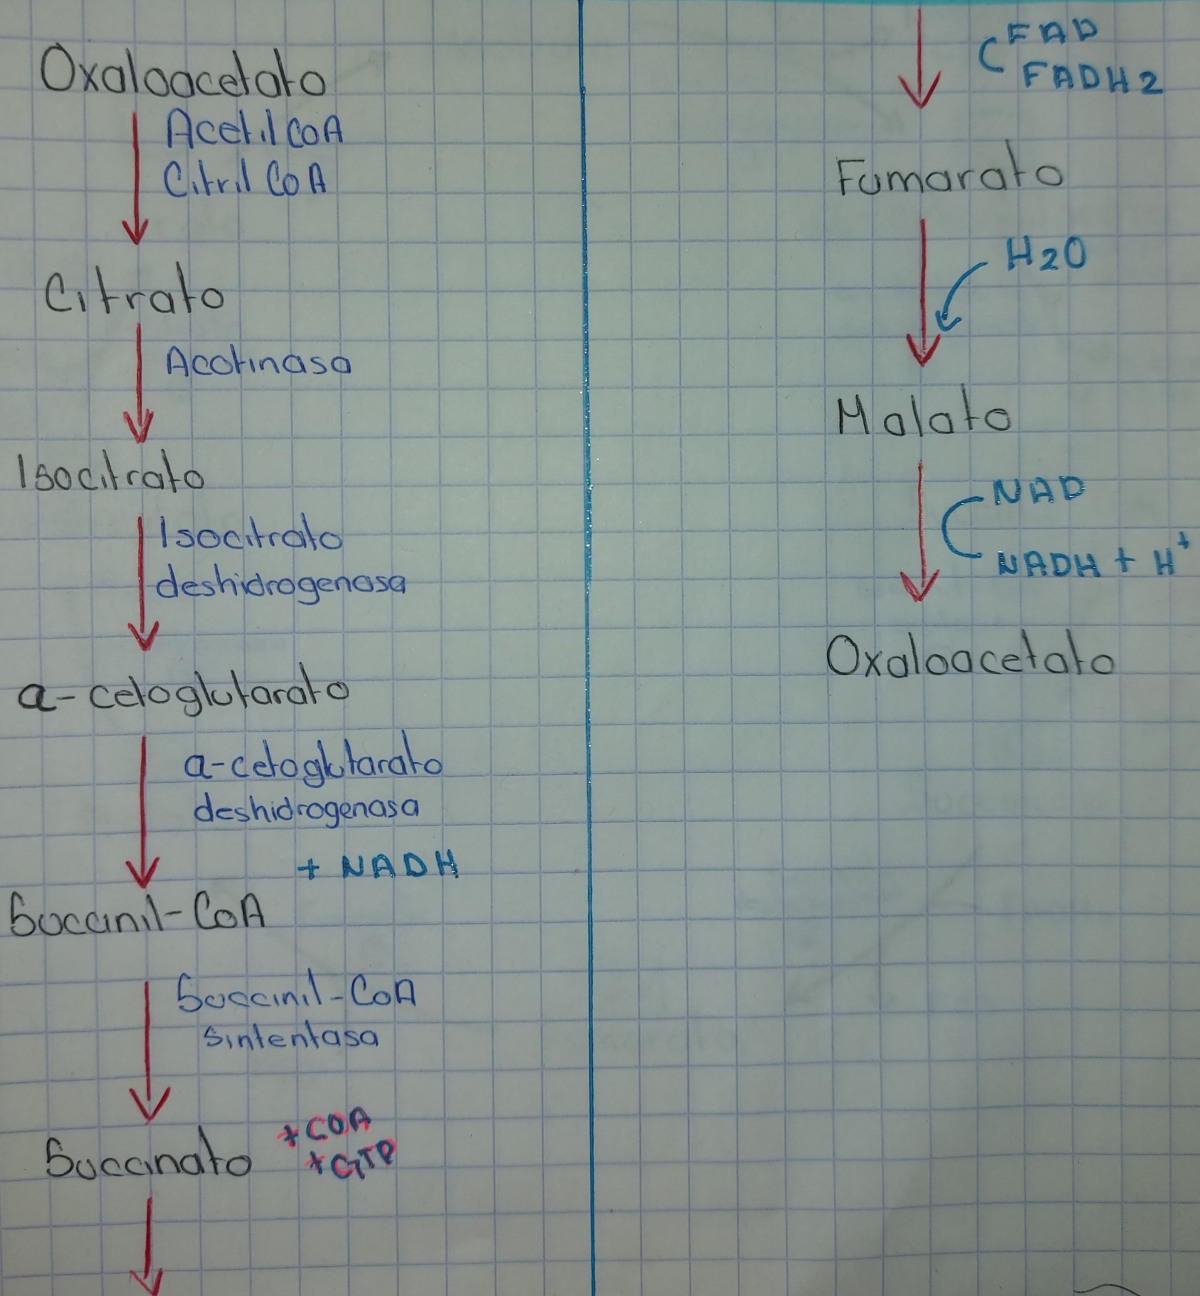 Oxaloacetato
Acetil CoA
Citril CoA
Citrato
Acotinasa
Isocitrato
Isocitrato
deshidrogenasa
a-cetoglutarato
a-cetoglutarato
deshidrogenasa
+ NADH
Succinil-CoA
Succinil-CoA
sintentasa
Succinato
+COA
+GTP
FAD
FADH2
Fumarato
H2O
Malato
NAD
NADH + H+
Oxaloacetato